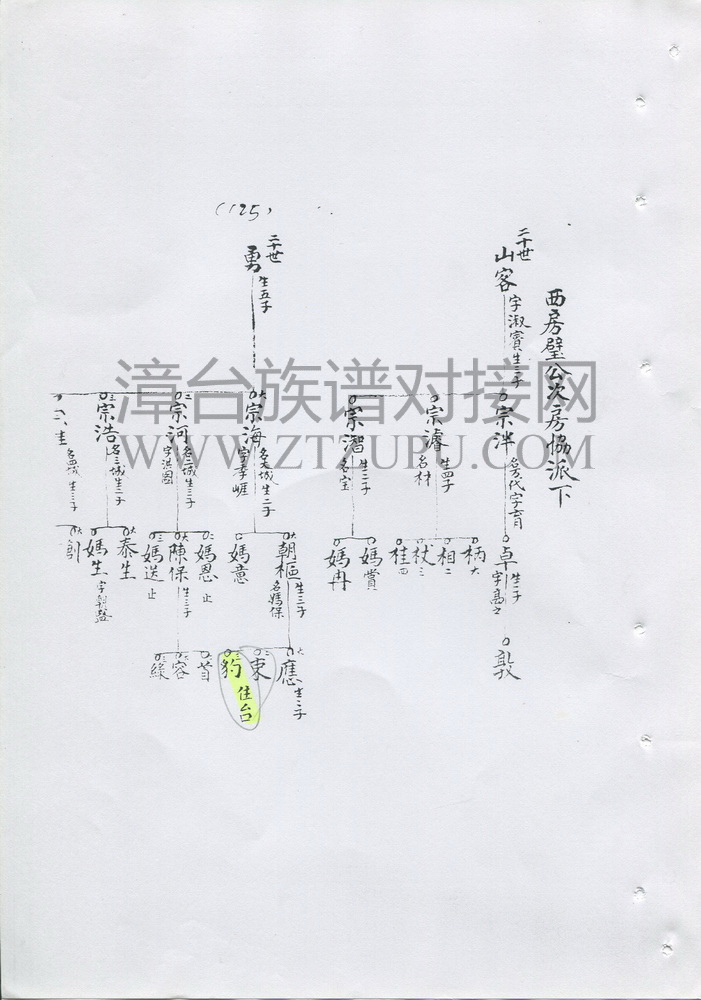 (125)
西房璧公次房協派下
二十世
山客 字淑賓生三子
宗泮 字育
卓 生一子 字高之
敦
宗濬 生四子 名材
柄 大
相 二
杕 三
桂 四
宗智 生二子 名宝
媽賞
媽冉
二十世
勇 生五子
宗海 名大城生二子 字孝崕
朝樞 生三子 名媽保
應 生三子
東
豹 住台
媽意
宗河 名二城生三子 字洪图
媽恩 止
陳保 生三子
首
容
綠
媽送 止
宗浩 名三城生二子
泰生
媽生
生三子
創
漳台族谱对接网
WWW.ZTZUPU.COM